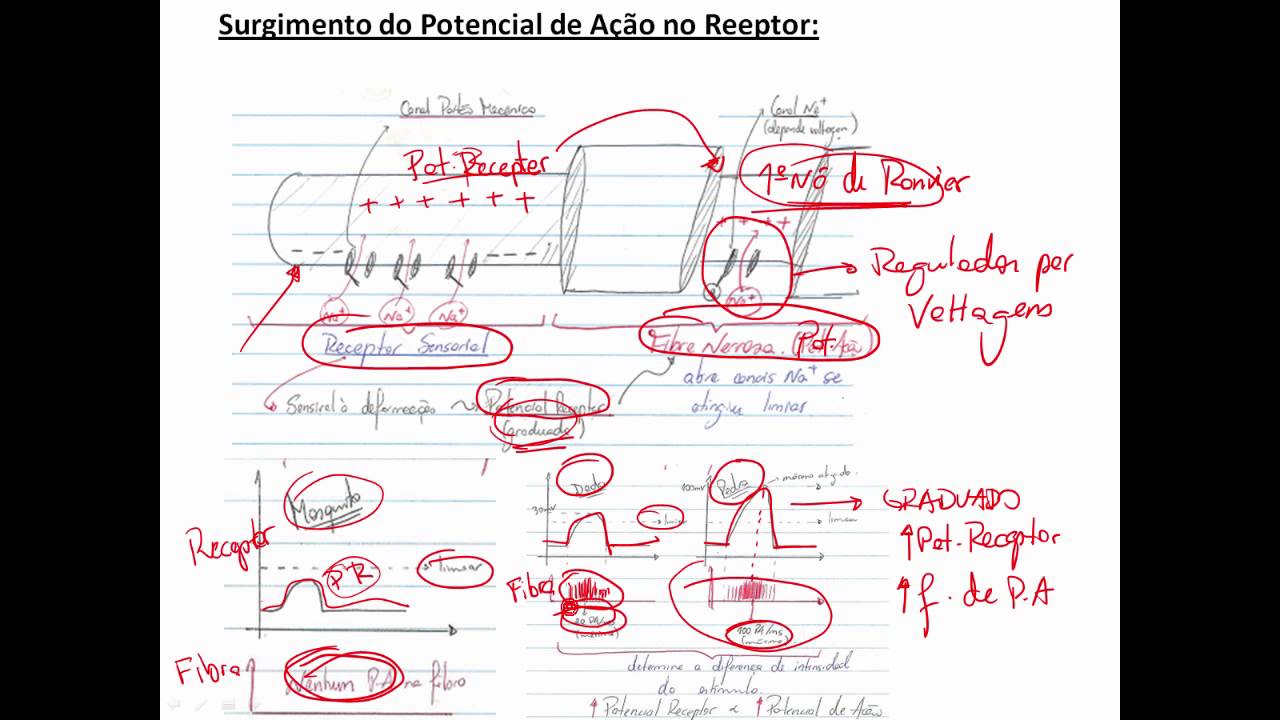 Surgimento do Potencial de Ação no Reeptor:
Canal Portão Mecânico
Canal Na⁺
(depende voltagem)
Pot. Receptor
1º Nô de Ranvier
+ + + + + +
+ + + +
Regulados por
Voltagens
Na⁺ Na⁺ Na⁺
Na⁺
Receptor Sensorial
Fibra Nervosa. (Pot. Ação
abre canais Na⁺ se
atingiu limiar
Sensível à deformação
Potencial Receptor
(graduado)
Mosquito
Receptor
PR
limiar
Fibra
Nenhum P.A na fibra
Dedo
30mV
limiar
Fibra
(máximo)
Pedra
100mV
máximo atingido.
limiar
100 PA/ms
(máximo)
GRADUADO
↑ Pot. Receptor
↑ f. de P.A
determina a diferença de intensidad
do estímulo.
↑ Potencial Receptor α ↑ Potencial de Ação